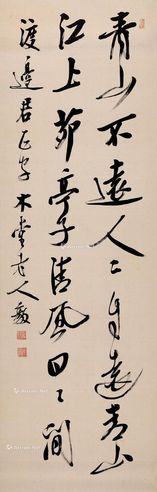 青山不遠人々自遠青山
江上茆亭子清風日々間
渡邊君正字 木堂老人毅